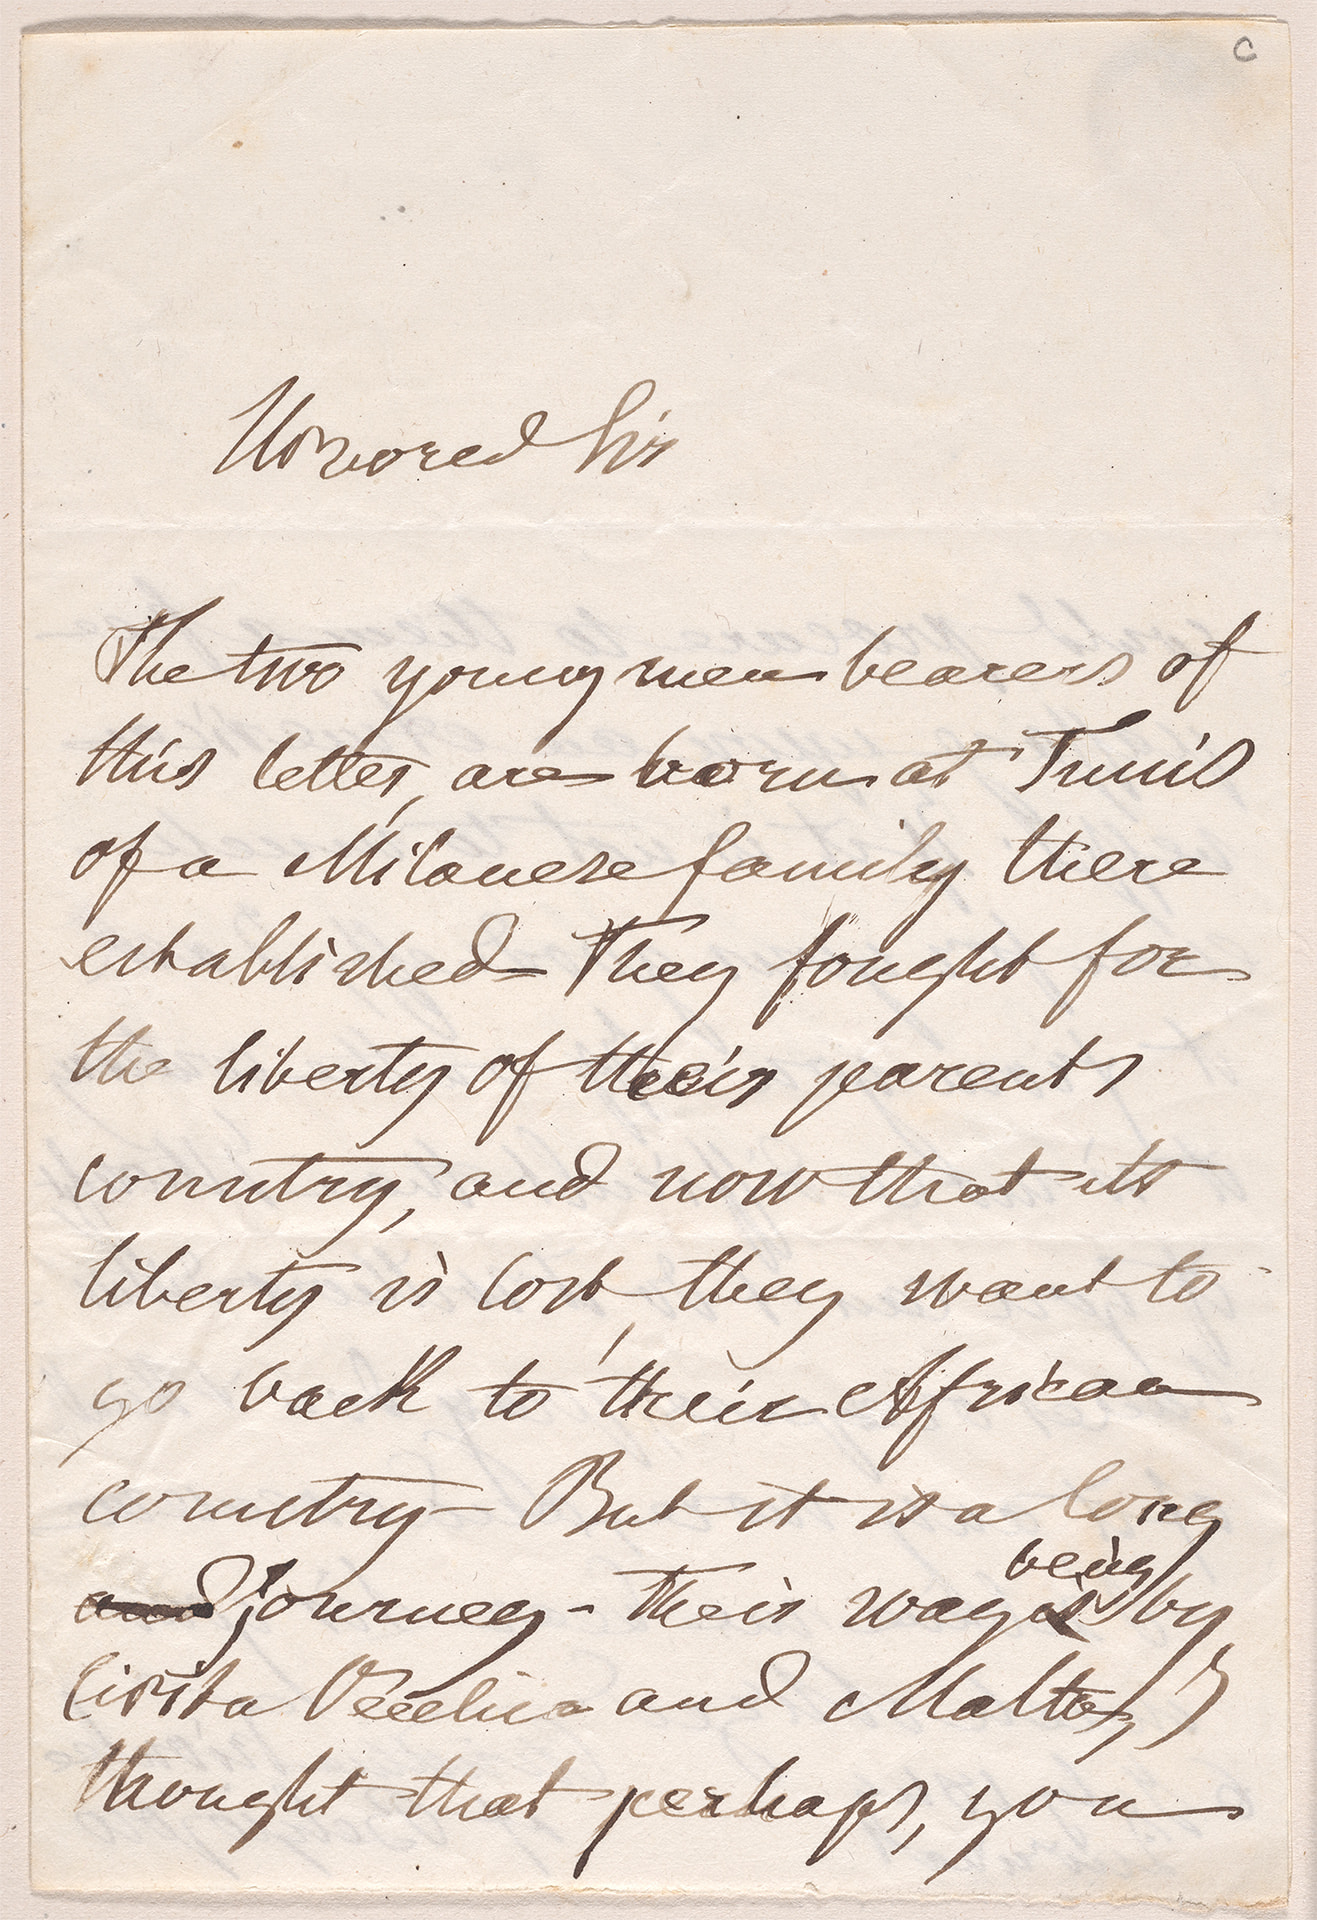 C
Honored Sir
The two young men bearers of
this letter, are born at Tunis
of a Milanese family there
established They fought for
the liberty of their parents
country, and now that its
liberty is lost, they want to
go back to their African
country - But it is a long
and journey - their way is being by
Civita Vecchia and Malta, I
thought that perhaps, you